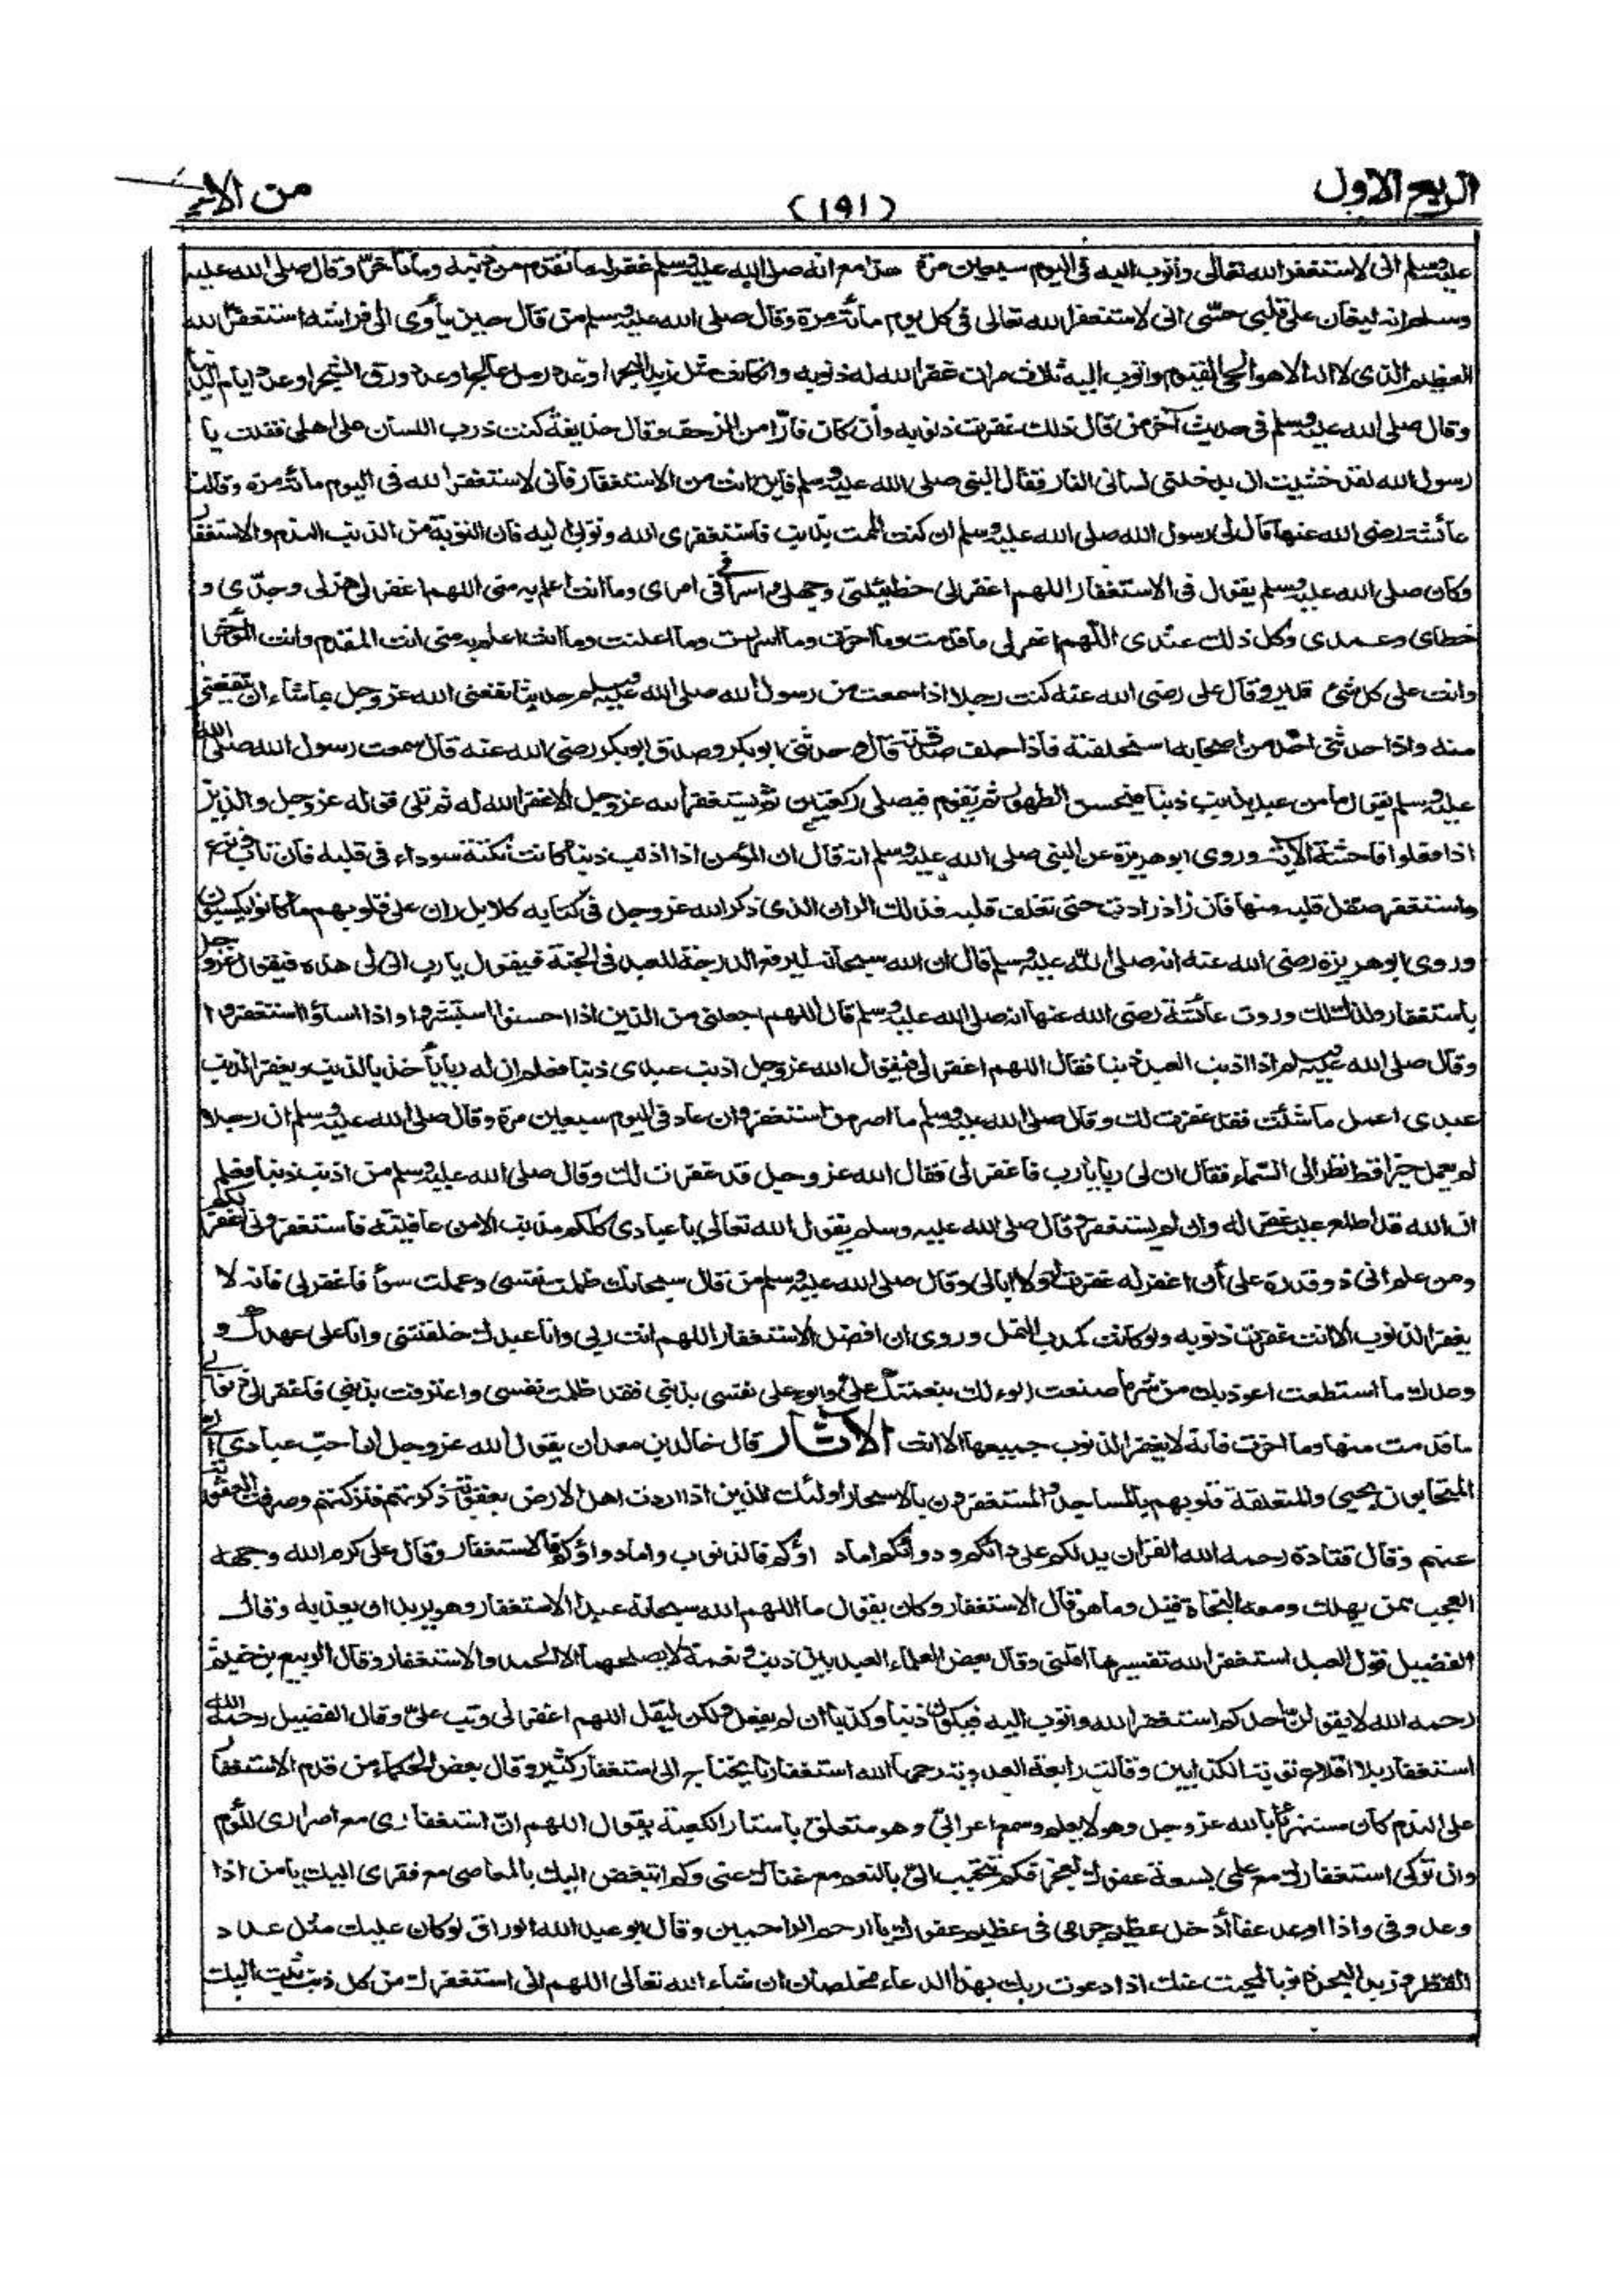 الربع الاول
(١٩١)
من الا
عليه وسلم انى لاستغفر الله تعالى وأتوب اليه فى اليوم سبعين مرة هذا مع انه صلى الله عليه وسلم غفر له ما تقدم من ذنبه وما تأخر وقال صلى الله عليه
وسلم انه ليغان على قلبى حتى انى لاستغفر الله تعالى فى كل يوم مائة مرة وقال صلى الله عليه وسلم من قال حين يأوى الى فراشه استغفر الله
العظيم الذى لا اله الا هو الحى القيوم واتوب اليه ثلاث مرات غفر الله له ذنوبه وان كانت مثل زبد البحر او عدد رمل عالج او عدد ورق الشجر او عدد ايام الدنيا
وقال صلى الله عليه وسلم فى حديث آخر من قال ذلك غفرت ذنوبه وأن كان فارّا من الزحف وقال حذيفة كنت ذرب اللسان على اهلى فقلت يا
رسول الله لقد خشيت ان يدخلنى لسانى النار فقال النبى صلى الله عليه وسلم فاين انت من الاستغفار فانى لاستغفر الله فى اليوم مائة مرة وقالت
عائشة رضى الله عنها قال لى رسول الله صلى الله عليه وسلم ان كنت الممت بذنب فاستغفرى الله وتوبى اليه فان التوبة من الذنب الندم والاستغفار
وكان صلى الله عليه وسلم يقول فى الاستغفار اللهم اغفر لى خطيئتى وجهلى واسرافى فى امرى وما انت اعلم به منى اللهم اغفر لى هزلى وجدّى و
خطاى وعمدى وكل ذلك عندى اللهم اغفر لى ما قدمت وما اخرت وما اسررت وما اعلنت وما انت اعلم به منى انت المقدم وانت المؤخر
وانت على كل شئ قدير وقال على رضى الله عنه كنت رجلا اذا سمعت من رسول الله صلى الله عليه وسلم حديثا نفعنى الله عز وجل بما شاء ان ينفعنى
منه واذا حدثنى احد من اصحابه استحلفته فاذا حلف صدقته قال وحدثنى ابو بكر وصدق ابو بكر رضى الله عنه قال سمعت رسول الله صلى الله
عليه وسلم يقول ما من عبد يذنب ذنبا فيحسن الطهور ثم يقوم فيصلى ركعتين ثم يستغفر الله عز وجل الا غفر الله له ثم تلى قوله عز وجل والذين
اذا فعلوا فاحشة الآية وروى ابو هريرة عن النبى صلى الله عليه وسلم انه قال ان المؤمن اذا اذنب ذنبا كانت نكتة سوداء فى قلبه فان تاب ونزع
واستغفر صقل قلبه منها فان زاد زادت حتى تغلف قلبه فذلك الران الذى ذكر الله عز وجل فى كتابه كلا بل ران على قلوبهم ما كانوا يكسبون
وروى ابو هريرة رضى الله عنه انه صلى الله عليه وسلم قال ان الله سبحانه ليرفع الدرجة للعبد فى الجنة فيقول يا رب انى لى هذه فيقول عز وجل
باستغفار ولدك لك وروت عائشة رضى الله عنها انه صلى الله عليه وسلم قال اللهم اجعلنى من الذين اذا احسنوا استبشروا واذا اساؤا استغفروا
وقال صلى الله عليه وسلم اذا اذنب العبد ذنبا فقال اللهم اغفر لى فيقول الله عز وجل اذنب عبدى ذنبا فعلم ان له ربا يأخذ بالذنب ويغفر الذنب
عبدى اعمل ما شئت فقد غفرت لك وقال صلى الله عليه وسلم ما اصر من استغفر وان عاد فى اليوم سبعين مرة وقال صلى الله عليه وسلم ان رجلا
لم يعمل خيرا قط نظر الى السماء فقال ان لى ربا يا رب فاغفر لى فقال الله عز وجل قد غفرت لك وقال صلى الله عليه وسلم من اذنب ذنبا فعلم
ان الله قد اطلع عليه غفر له وان لم يستغفر وقال صلى الله عليه وسلم يقول الله تعالى يا عبادى كلكم مذنب الا من عافيته فاستغفرونى اغفر لكم
ومن علم انى ذو قدرة على أن اغفر له غفرت له ولا ابالى وقال صلى الله عليه وسلم من قال سبحانك ظلمت نفسى وعملت سوأ فاغفر لى فانه لا
يغفر الذنوب الا انت غفرت ذنوبه ولو كانت كمدب النمل وروى ان افضل الاستغفار اللهم انت ربى وانا عبدك خلقتنى وانا على عهدك و
وعدك ما استطعت اعوذ بك من شر ما صنعت ابوء لك بنعمتك علىّ وابوء على نفسى بذنبى فقد ظلمت نفسى واعترفت بذنبى فاغفر لى ذنوبى
ما قدمت منها وما اخرت فانه لا يغفر الذنوب جميعها الا انت الآثار قال خالد بن معدان يقول الله عز وجل ان احب عبادى الىّ
المتحابون بحبى والمتعلقة قلوبهم بالمساجد والمستغفرون بالاسحار اولئك الذين اذا اردت اهل الارض بعقوبة ذكرتهم فتركتهم وصرفت العقوبة
عنهم وقال قتادة رحمه الله القرآن يدلكم على دائكم ودوائكم اما داؤكم فالذنوب واما دواؤكم فالاستغفار وقال على كرم الله وجهه
العجيب ممن يهلك ومعه النجاة قيل وما هو قال الاستغفار وكان يقول ما الهم الله سبحانه عبدا الاستغفار وهو يريد ان يعذبه وقال
الفضيل قول العبد استغفر الله تفسيرها اقلنى وقال بعض العلماء العبد بين ذنب ونعمة لا يصلحهما الا الحمد والاستغفار وقال الربيع بن خيثم
رحمه الله لا يقولن احدكم استغفر الله واتوب اليه فيكون ذنبا وكذبا ان لم يفعل ولكن ليقل اللهم اغفر لى وتب علىّ وقال الفضيل رحمه الله
استغفار بلا اقلاع توبة الكذابين وقالت رابعة العدوية رحمها الله استغفارنا يحتاج الى استغفار كثير وقال بعض الحكماء من قدم الاستغفار
على الندم كان مستهزئا بالله عز وجل وهو لا يعلم وسمع اعرابى وهو متعلق باستار الكعبة يقول اللهم ان استغفارى مع اصرارى للؤم
وان تركى استغفارك مع علمى بسعة عفوك لعجز فكم تتحبب الىّ بالنعم مع غناك عنى وكم اتبغض اليك بالمعاصى مع فقرى اليك يا من اذا
وعد وفى واذا اوعد عفا أدخل عظيم جرمى فى عظيم عفوك يا ارحم الراحمين وقال ابو عبد الله الوراق لو كان عليك مثل عدد
القطر وزبد البحر ذنوبا لمحيت عنك اذا دعوت ربك بهذا الدعاء مخلصا ان شاء الله تعالى اللهم انى استغفرك من كل ذنب تبت اليك